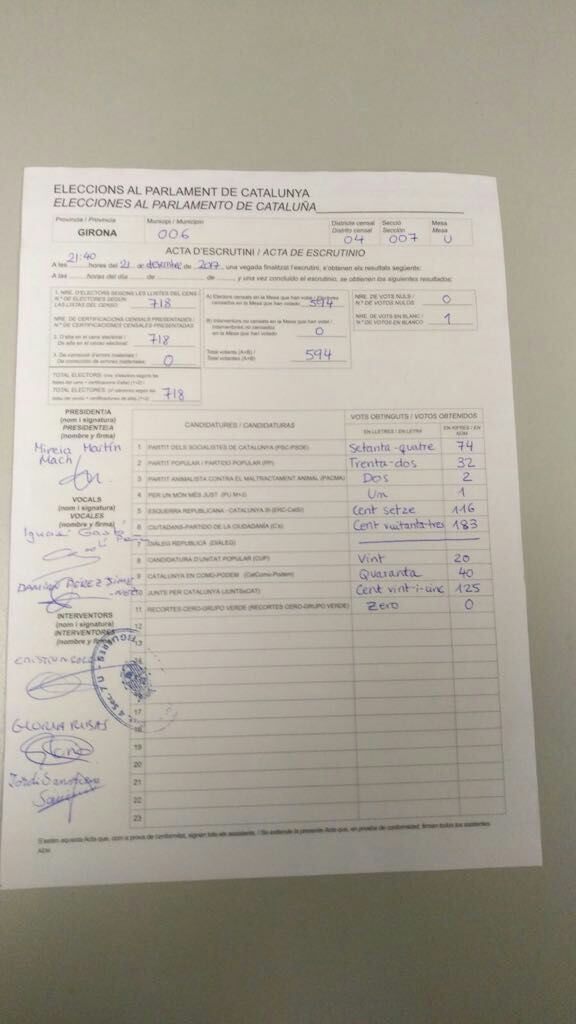 ELECCIONS AL PARLAMENT DE CATALUNYA
ELECCIONES AL PARLAMENTO DE CATALUÑA
Província / Provincia
GIRONA
Municipi / Municipio
006
Districte censal
Distrito censal
04
Secció
Sección
007
Mesa
Mesa
U
ACTA D'ESCRUTINI / ACTA DE ESCRUTINIO
A les 21:40 hores del 21 de desembre de 2017, una vegada finalitzat l'escrutini, s'obtenen els resultats següents:
A las hores del día de de , y una vez concluido el escrutinio, se obtienen los siguientes resultados:
1. NRE. D'ELECTORS SEGONS LES LLISTES DEL CENS
N.º DE ELECTORES SEGÚN
LAS LISTAS DEL CENSO
718
NRE. DE CERTIFICACIONS CENSALS PRESENTADES /
N.º DE CERTIFICACIONES CENSALES PRESENTADAS
2. D'alta en el cens electoral /
De alta en el censo electoral
718
3. De correcció d'errors materials /
De corrección de errores materiales
0
TOTAL ELECTORS
TOTAL ELECTORES
718
A) Electors censats en la Mesa que han votat / Electores
censados en la Mesa que han votado
594
B) Interventors no censats en la Mesa que han votat /
Interventores no censados
en la Mesa que han votado
0
Total votants (A+B) /
Total votantes (A+B)
594
NRE. DE VOTS NULS /
N.º DE VOTOS NULOS
0
NRE. DE VOTS EN BLANC /
N.º DE VOTOS EN BLANCO
1
PRESIDENT/A
(nom i signatura)
PRESIDENTE/A
(nombre y firma)
Mireia Martín
Mach
VOCALS
(nom i signatura)
VOCALES
(nombre y firma)
DAMIAN PÉREZ
INTERVENTORS
(nom i signatura)
INTERVENTORES
(nombre y firma)
GLORIA RIBAS
Jordi
FIGUERES - 4 SEC. 7 U
CANDIDATURES / CANDIDATURAS
VOTS OBTINGUTS / VOTOS OBTENIDOS
EN LLETRES / EN LETRA
EN XIFRES / EN NÚM.
1 PARTIT DELS SOCIALISTES DE CATALUNYA (PSC-PSOE) Setanta-quatre 74
2 PARTIT POPULAR / PARTIDO POPULAR (PP) Trenta-dos 32
3 PARTIT ANIMALISTA CONTRA EL MALTRACTAMENT ANIMAL (PACMA) Dos 2
4 PER UN MÓN MÉS JUST (PUM+J) Un 1
5 ESQUERRA REPUBLICANA - CATALUNYA SÍ (ERC-CatSí) Cent setze 116
6 CIUTADANS-PARTIDO DE LA CIUDADANÍA (C's) Cent vuitanta-tres 183
7 DIÀLEG REPUBLICÀ (DIÀLEG)
8 CANDIDATURA D'UNITAT POPULAR (CUP) Vint 20
9 CATALUNYA EN COMÚ-PODEM (CatComú-Podem) Quaranta 40
10 JUNTS PER CATALUNYA (JUNTSxCAT) Cent vint-i-cinc 125
11 RECORTES CERO-GRUPO VERDE (RECORTES CERO-GRUPO VERDE) Zero 0
12
13
14
17
18
19
20
21
22
23
S'estén aquesta Acta que, com a prova de conformitat, signen tots els assistents. / Se extiende la presente Acta que, en prueba de conformidad, firman todos los asistentes